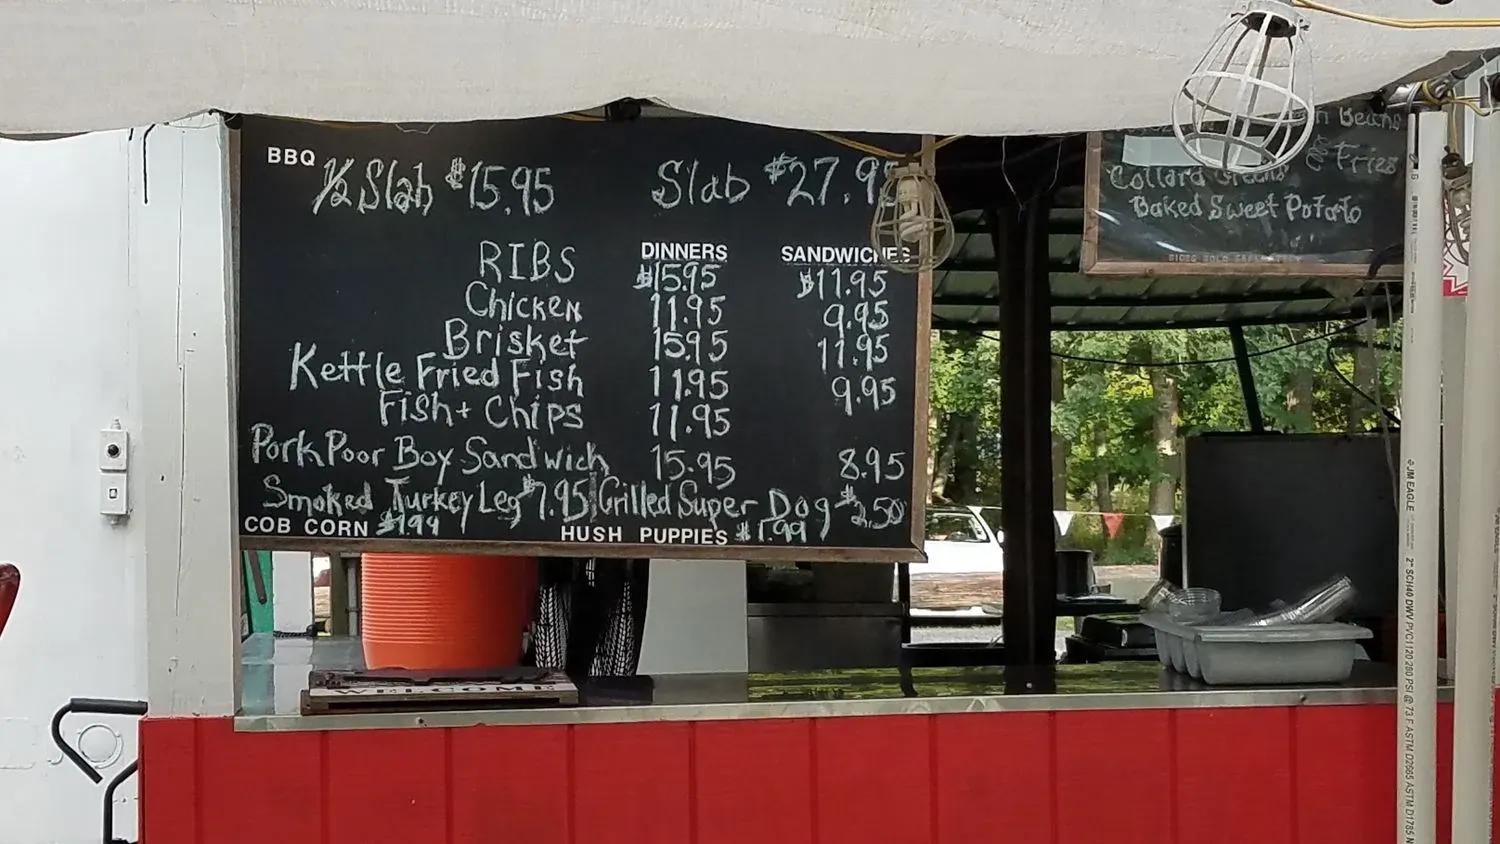 BBQ ½ Slab $15.95 Slab $27.95
DINNERS SANDWICHES
RIBS $15.95 $11.95
Chicken 11.95 9.95
Brisket 15.95 11.95
Kettle Fried Fish 11.95 9.95
Fish + Chips 11.95
Pork Poor Boy Sandwich 15.95 8.95
Smoked Turkey Leg $7.95 Grilled Super Dog $2.50
COB CORN $1.99 HUSH PUPPIES $1.99
Beans
& Fries
Collard Greens
Baked Sweet Potato
WELCOME
JM EAGLE 2" SCH40 DWV PVC1120 280 PSI @ 73 F ASTM D2665 ASTM D1785